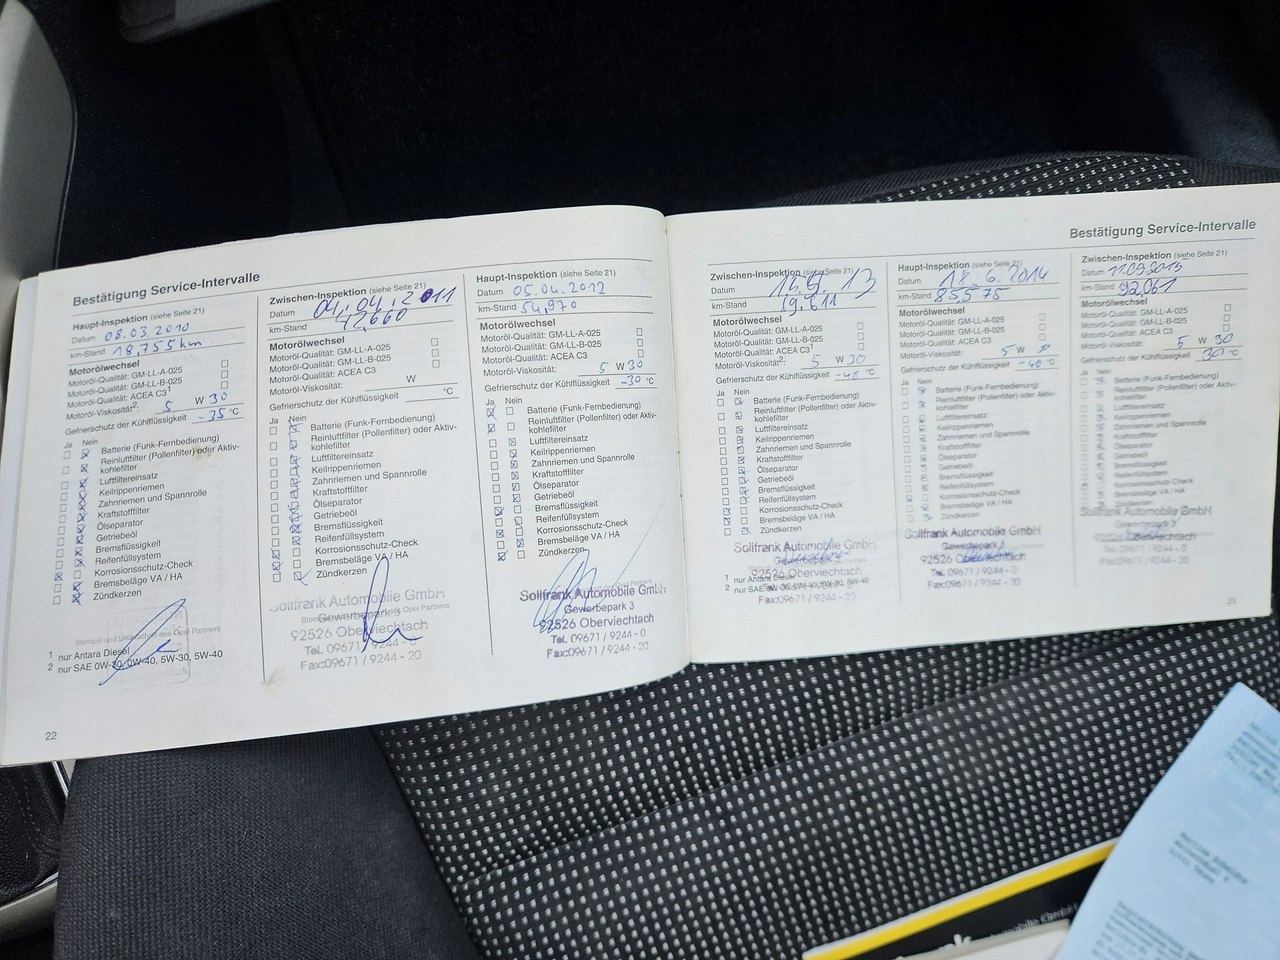 Bestätigung Service-Intervalle
Haupt-Inspektion (siehe Seite 21)
Datum 08.03.2010
km-Stand 18,755 km
Motorölwechsel
Motoröl-Qualität: GM-LL-A-025
Motoröl-Qualität: GM-LL-B-025
Motoröl-Qualität: ACEA C3
Motoröl-Viskosität2: 5 W 30
Gefrierschutz der Kühlflüssigkeit -35 °C
Ja Nein
Batterie (Funk-Fernbedienung)
Reinluftfilter (Pollenfilter) oder Aktiv-
kohlefilter
Luftfiltereinsatz
Keilrippenriemen
Zahnriemen und Spannrolle
Kraftstofffilter
Ölseparator
Getriebeöl
Bremsflüssigkeit
Reifenfüllsystem
Korrosionsschutz-Check
Bremsbeläge VA / HA
Zündkerzen
Stempel und Unterschrift des Opel Partners
1 nur Antara Diesel
2 nur SAE 0W-30, 0W-40, 5W-30, 5W-40
22
Zwischen-Inspektion (siehe Seite 21)
Datum 04.04.2011
km-Stand 42660
Motorölwechsel
Motoröl-Qualität: GM-LL-A-025
Motoröl-Qualität: GM-LL-B-025
Motoröl-Qualität: ACEA C3
Motoröl-Viskosität: W
Gefrierschutz der Kühlflüssigkeit °C
Ja Nein
Batterie (Funk-Fernbedienung)
Reinluftfilter (Pollenfilter) oder Aktiv-
kohlefilter
Luftfiltereinsatz
Keilrippenriemen
Zahnriemen und Spannrolle
Kraftstofffilter
Ölseparator
Getriebeöl
Bremsflüssigkeit
Reifenfüllsystem
Korrosionsschutz-Check
Bremsbeläge VA / HA
Zündkerzen
Sollfrank Automobile GmbH
Gewerbepark 3
92526 Oberviechtach
Tel. 09671 / 9244 - 0
Fax:09671 / 9244 - 20
Haupt-Inspektion (siehe Seite 21)
Datum 05.04.2012
km-Stand 54,970
Motorölwechsel
Motoröl-Qualität: GM-LL-A-025
Motoröl-Qualität: GM-LL-B-025
Motoröl-Qualität: ACEA C3
Motoröl-Viskosität: 5 W 30
Gefrierschutz der Kühlflüssigkeit -30 °C
Ja Nein
Batterie (Funk-Fernbedienung)
Reinluftfilter (Pollenfilter) oder Aktiv-
kohlefilter
Luftfiltereinsatz
Keilrippenriemen
Zahnriemen und Spannrolle
Kraftstofffilter
Ölseparator
Getriebeöl
Bremsflüssigkeit
Reifenfüllsystem
Korrosionsschutz-Check
Bremsbeläge VA / HA
Zündkerzen
Sollfrank Automobile GmbH
Gewerbepark 3
92526 Oberviechtach
Tel. 09671 / 9244 - 0
Fax:09671 / 9244 - 20
Bestätigung Service-Intervalle
Zwischen-Inspektion (siehe Seite 21)
Datum
km-Stand
Motorölwechsel
Motoröl-Qualität: GM-LL-A-025
Motoröl-Qualität: GM-LL-B-025
Motoröl-Qualität: ACEA C3
Motoröl-Viskosität2: 5 W 30
Gefrierschutz der Kühlflüssigkeit °C
Ja Nein
Batterie (Funk-Fernbedienung)
Reinluftfilter (Pollenfilter) oder Aktiv-
kohlefilter
Luftfiltereinsatz
Keilrippenriemen
Zahnriemen und Spannrolle
Kraftstofffilter
Ölseparator
Getriebeöl
Bremsflüssigkeit
Reifenfüllsystem
Korrosionsschutz-Check
Bremsbeläge VA / HA
Zündkerzen
Sollfrank Automobile GmbH
Gewerbepark 3
92526 Oberviechtach
1 nur Antara Diesel
2 nur SAE 0W-30, 0W-40, 5W-30, 5W-40
Fax:09671 / 9244 - 20
Haupt-Inspektion (siehe Seite 21)
Datum 18.6.2014
km-Stand 85575
Motorölwechsel
Motoröl-Qualität: GM-LL-A-025
Motoröl-Qualität: GM-LL-B-025
Motoröl-Qualität: ACEA C3
Motoröl-Viskosität: 5 W
Gefrierschutz der Kühlflüssigkeit °C
Ja Nein
Batterie (Funk-Fernbedienung)
Reinluftfilter (Pollenfilter) oder Aktiv-
kohlefilter
Luftfiltereinsatz
Keilrippenriemen
Zahnriemen und Spannrolle
Kraftstofffilter
Ölseparator
Getriebeöl
Bremsflüssigkeit
Reifenfüllsystem
Korrosionsschutz-Check
Bremsbeläge VA / HA
Zündkerzen
Sollfrank Automobile GmbH
Gewerbepark 3
92526 Oberviechtach
Tel. 09671 / 9244 - 0
Fax:09671 / 9244 - 20
Zwischen-Inspektion (siehe Seite 21)
Datum 11.09.2015
km-Stand 92061
Motorölwechsel
Motoröl-Qualität: GM-LL-A-025
Motoröl-Qualität: GM-LL-B-025
Motoröl-Qualität: ACEA C3
Motoröl-Viskosität: 5 W 30
Gefrierschutz der Kühlflüssigkeit 30 °C
Ja Nein
Batterie (Funk-Fernbedienung)
Reinluftfilter (Pollenfilter) oder Aktiv-
kohlefilter
Luftfiltereinsatz
Keilrippenriemen
Zahnriemen und Spannrolle
Kraftstofffilter
Ölseparator
Getriebeöl
Bremsflüssigkeit
Reifenfüllsystem
Korrosionsschutz-Check
Bremsbeläge VA / HA
Zündkerzen
Sollfrank Automobile GmbH
Gewerbepark 3
92526 Oberviechtach
Tel. 09671 / 9244 - 0
Fax:09671 / 9244 - 20
23